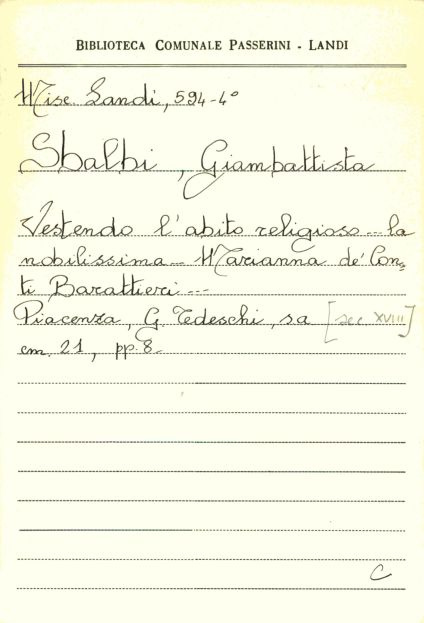 BIBLIOTECA COMUNALE PASSERINI - LANDI
Misc. Landi, 594-4°
Sbalbi, Giambattista
Vestendo l'abito religioso ... la
nobilissima ... Marianna de' Con-
ti Barattieri ...
Piacenza, G. Tedeschi, sa [sec XVIII]
cm. 21, pp. 8.
C